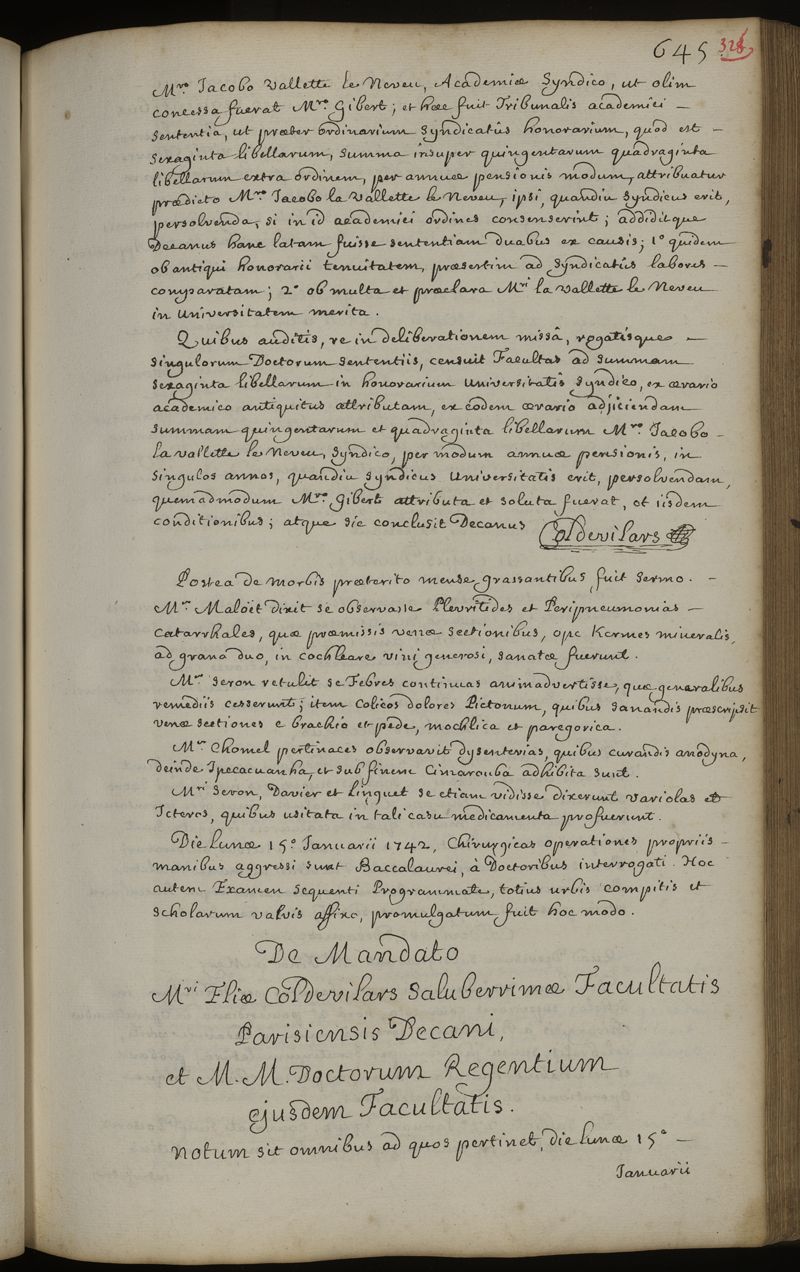 645 328
Mro. Jacobo Vallette le Neveu, Academiæ Syndico, ut olim
concessa fuerat Mro. Gibert; et hæc fuit Tribunalis academici —
sententia, ut præter ordinarium syndicatûs honorarium, quod est —
sexaginta libellarum, summa insuper quingentarum quadraginta
libellarum extra ordinem, per annuæ pensionis modum, attribuatur
prædicto Mro. Jacobo la Vallette le Neveu, ipsi, quandiu syndicus erit,
persolvenda, si in id academici ordines consenserint; addiditque
Decanus hanc latam fuisse sententiam duabus ex causis; 1o. quidem
ob antiqui honorarii tenuitatem, præsertim ad syndicatûs labores —
comparatam; 2o. ob multa et præclara Mri. la Vallette le Neveu
in Universitatem merita.
Quibus auditis, re in deliberationem missâ, rogatisque —
singulorum Doctorum sententiis, censuit Facultas ad summam
sexaginta libellarum in honorarium Universitatis Syndico, ex ærario
academico antiquitus attributam, ex eodem ærario adjiciendam
summam quingentarum et quadraginta libellarum Mro. Jacobo —
la vallette le Neveu, Syndico, per modum annuæ pensionis, in
singulos annos, quandiu syndicus Universitatis erit, persolvendam,
quemadmodum Mro. Gibert attributa et soluta fuerat, et iisdem
conditionibus; atque sic conclusit Decanus Col de vilars
Postea de morbis præterito mense grassantibus fuit sermo. —
Mr. Maloët dixit se observasse Pleuritides et Peripneumonias —
catarrhales, quæ præmissis venæ sectionibus, ope Kermes mineralis,
ad grana duo, in cochleare vini generosi, sanatæ fuerunt.
Mr. Seron retulit se Febres continuas animadvertisse, quæ generalibus
remediis cesserunt; item colicos dolores Pictonum, quibus sanandis præscripsit
venæ sectiones e brachio et pede, mochlica et paregorica.
Mr. Chomel pertinaces observavit dysenterias, quibus curandis anodyna,
deinde Ipecacuanha, et sub finem Cimarouba adhibita sunt.
Mri. Seron, Davier et Linguet se etiam vidisse dixerunt variolas et
Icteros, quibus usitata in tali casu medicamenta profuerunt.
Die lunæ 15o. Januarii 1742, Chirurgicas operationes propriis —
manibus aggressi sunt Baccalaurei, à Doctoribus interrogati. Hoc
autem Examen sequenti Programmate, totius urbis compitis et
scholarum valvis affixo, promulgatum fuit hoc modo.
De Mandato
Mri. Eliæ Col de vilars Saluberrimæ Facultatis
Parisiensis Decani,
et M. M. Doctorum Regentium
ejusdem Facultatis.
Notum sit omnibus ad quos pertinet, die lunæ 15a —
Januarii